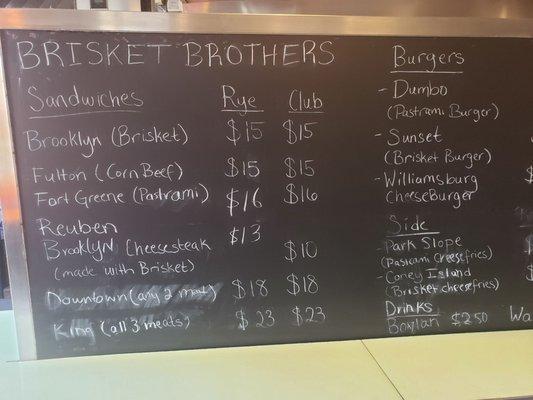 BRISKET BROTHERS
Sandwiches Rye Club
Brooklyn (Brisket) $15 $15
Fulton (Corn Beef) $15 $15
Fort Greene (Pastrami) $16 $16
Reuben $13
Brooklyn Cheesesteak $10
(made with Brisket)
Downtown (any 2 meats) $18 $18
King (all 3 meats) $23 $23
Burgers
- Dumbo
(Pastrami Burger)
- Sunset
(Brisket Burger)
- Williamsburg
CheeseBurger
Side
- Park Slope
(Pastrami Cheesefries)
- Coney Island
(Brisket cheesefries)
Drinks
Boylan $2.50 Wa